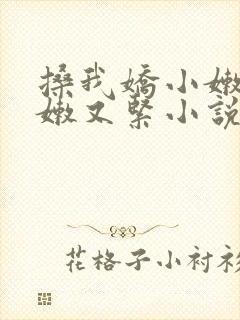 搡我嬌小嫩
嫩又緊小說
花格子小衬衫